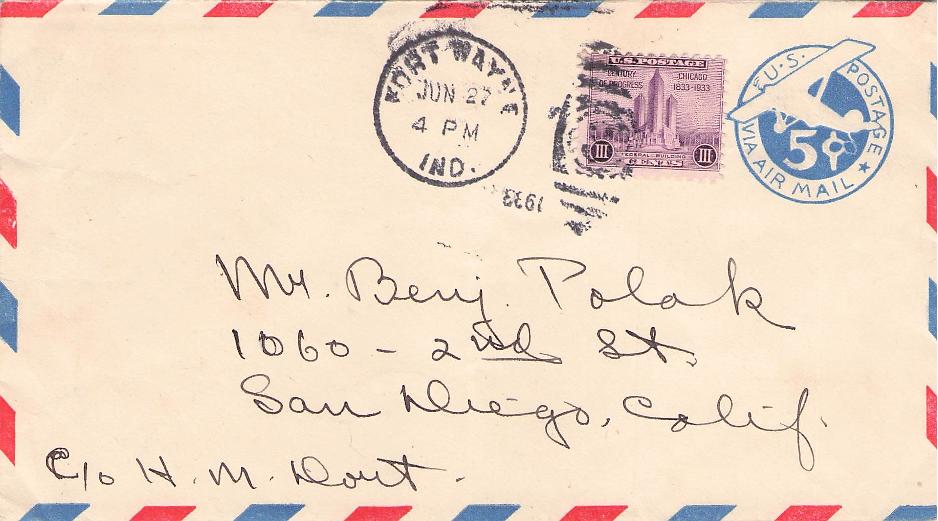 FORT WAYNE
JUN 27
4 PM
IND.
1933
U.S. POSTAGE
CENTURY OF PROGRESS
CHICAGO
1833-1933
III III
FEDERAL BUILDING
CENTS
U.S. POSTAGE
5¢
VIA AIR MAIL
Mr. Benj. Polak
1060 - 2nd St.
San Diego, Calif.
C/o H. M. Dort.